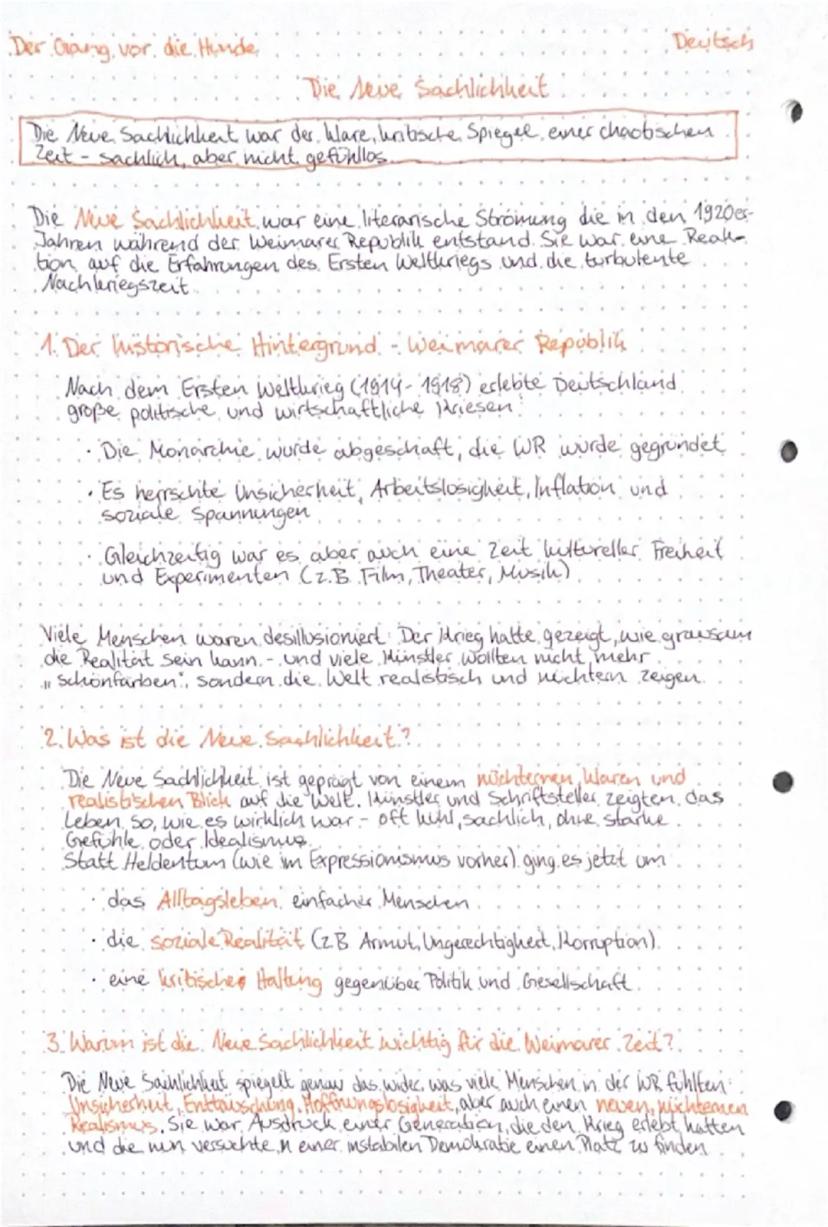 Der Gang vor die Hunde
Deutsch
Die Neue Sachlichkeit
Die Neue Sachlichkeit war der klare, kritische Spiegel einer chaotischen
Zeit - sachlich, aber nicht gefühllos.
Die Neue Sachlichkeit war eine literarische Strömung die in den 1920er-
Jahren während der Weimarer Republik entstand. Sie war eine Reak-
tion auf die Erfahrungen des Ersten Weltkriegs und die turbulente
Nachkriegszeit.
1. Der historische Hintergrund - Weimarer Republik
Nach dem Ersten Weltkrieg (1914-1918) erlebte Deutschland
große politische und wirtschaftliche Kriesen:
· Die Monarchie wurde abgeschaft, die WR wurde gegründet
· Es herrschte Unsicherheit, Arbeitslosigkeit, Inflation und
soziale Spannungen
· Gleichzeitig war es aber auch eine Zeit kultureller Freiheit
und Experimenten (z.B. Film, Theater, Musik)
Viele Menschen waren desillusioniert: Der Krieg hatte gezeigt, wie grausam
die Realität sein kann - und viele Künstler wollten nicht mehr
„schönfärben", sondern die Welt realistisch und nüchtern zeigen.
2. Was ist die Neue Sachlichkeit?
Die Neue Sachlichkeit ist geprägt von einem nüchternen, klaren und
realistischen Blick auf die Welt. Künstler und Schriftsteller zeigten das
Leben so, wie es wirklich war - oft kühl, sachlich, ohne starke
Gefühle oder Idealismus.
Statt Heldentum (wie im Expressionismus vorher) ging es jetzt um
· das Alltagsleben einfacher Menschen
· die soziale Realität (z.B. Armut, Ungerechtigkeit, Korruption)
· eine kritische Haltung gegenüber Politik und Gesellschaft
3. Warum ist die Neue Sachlichkeit wichtig für die Weimarer Zeit?
Die Neue Sachlichkeit spiegelt genau das wider, was viele Menschen in der WR fühlten:
Unsicherheit, Enttäuschung, Hoffnungslosigkeit, aber auch einen neuen, nüchternen
Realismus. Sie war Ausdruck einer Generation, die den Krieg erlebt hatten
und die nun versuchte, in einer instabilen Demokratie einen Platz zu finden.